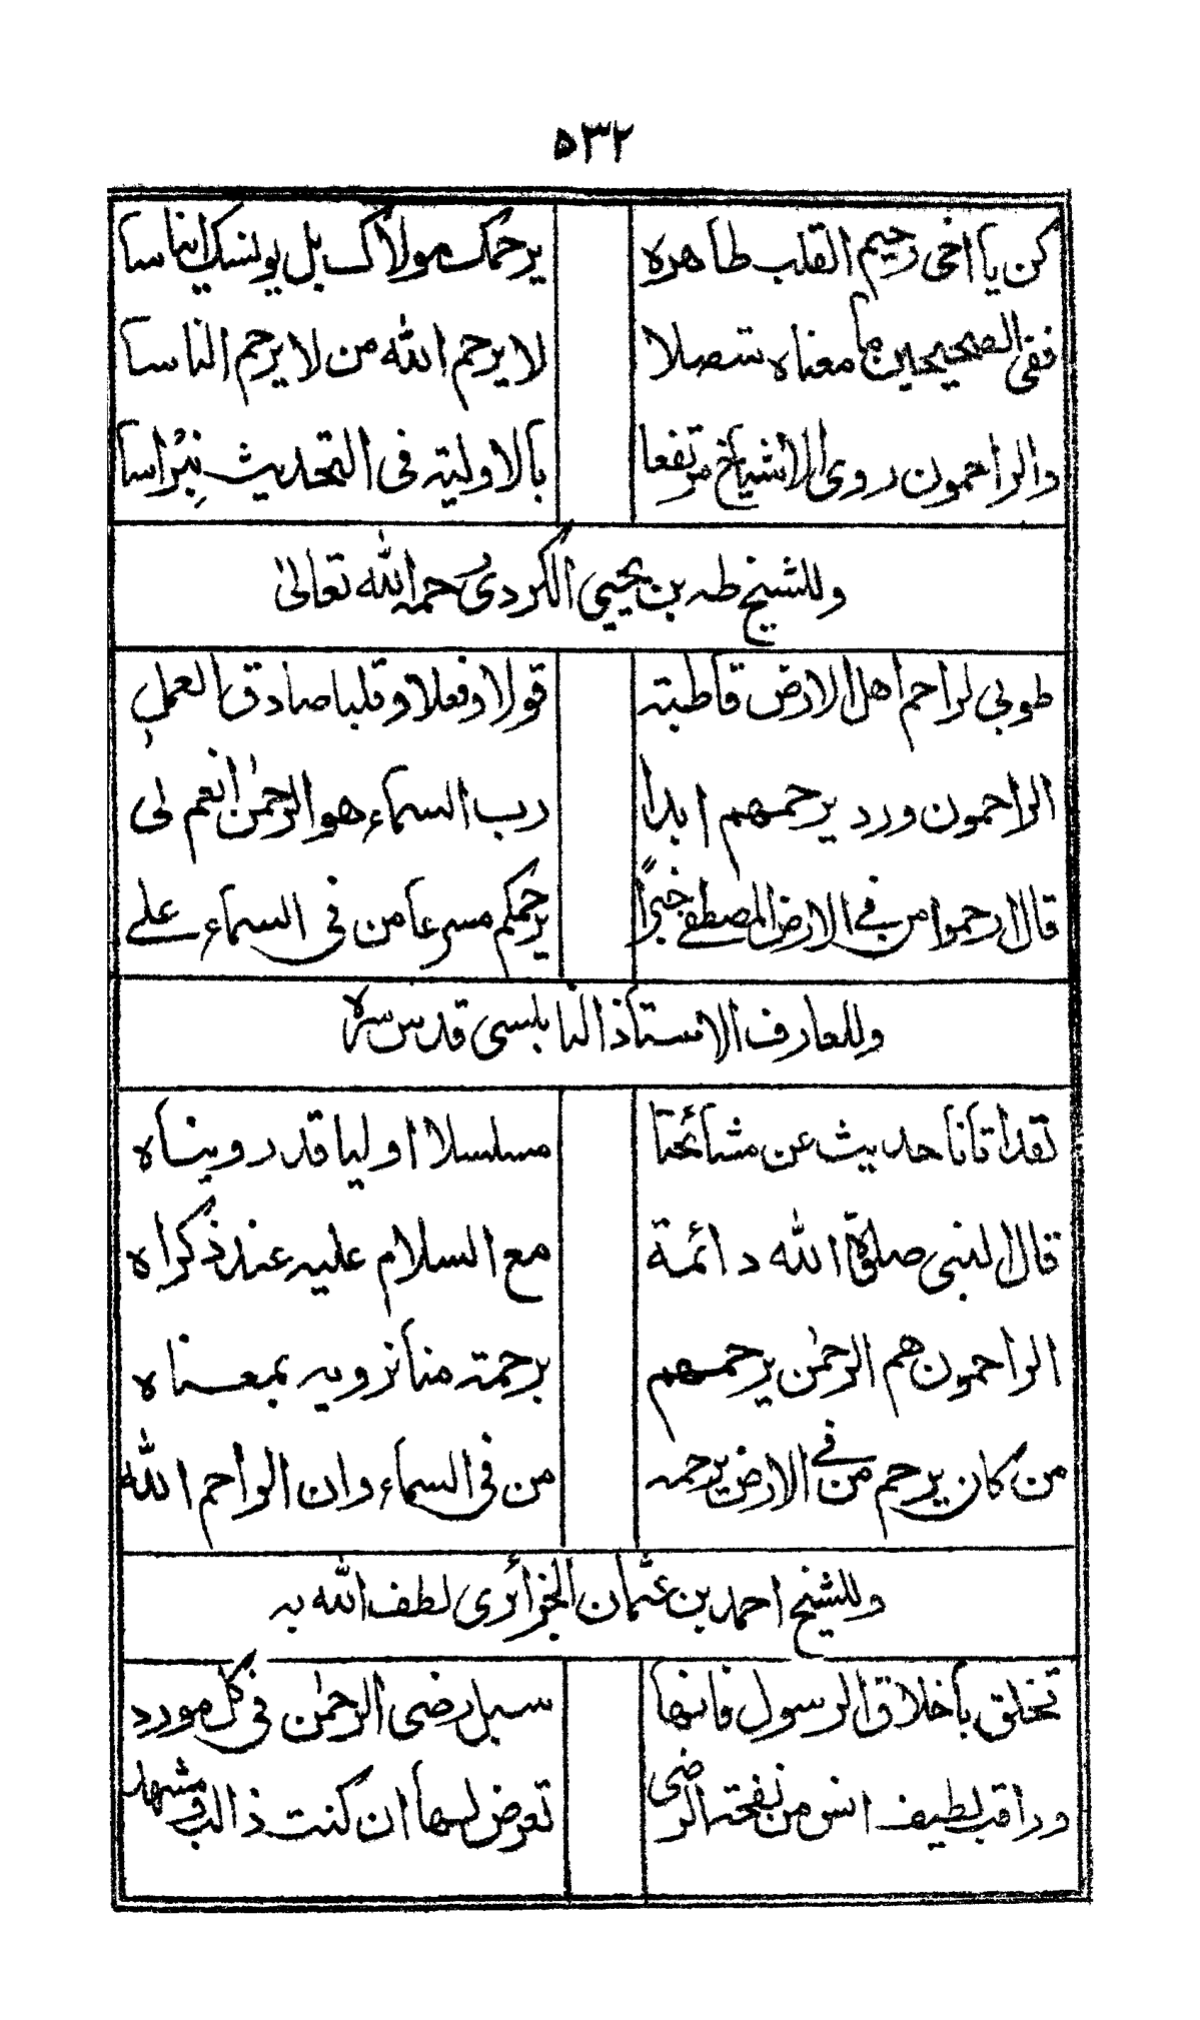 ٥٣٢
كن يا اخى رحيم القلب طاهره يرحمك مولاك بل يونسك ايناسا
ففى الصحيحين ما معناه متصلا لا يرحم الله من لا يرحم الناسا
والراحمون روى الاشياخ مرتفعا بالاولية فى التحديث نِبْراسا
وللشيخ طه بن يحيي الكردى رحمه الله تعالى
طوبى لراحم اهل الارض قاطبته قولا وفعلا وقلبا صادق العملِ
الراحمون ورد يرحمهم ابدا رب السماء هو الرحمٰن انعم لى
قال ارحموا من فى الارض المصطفى خبرًا يرحمكم مسرعا من فى السماء على
وللعارف الاستاذ النابلسى قدس سره
لقد اتانا حديث عن مشائخنا مسلسلا اوليا قد رويناه
قال النبى صلوة الله دائمة مع السلام عليه عند ذكراه
الراحمون هم الرحمٰن يرحمهم برحمته منا نرويه بمعناه
من كان يرحم من فى الارض يرحمه من فى السماء وان الواحم الله
وللشيخ احمد بن عثمان الخزائرى لطف الله به
تخلق باخلاق الرسول فانها سبل رضى الرحمٰن فى كل مورد
وراقب لطيف انس من نفحته الرضى تعرض لها ان كنت ذا لب مشهد